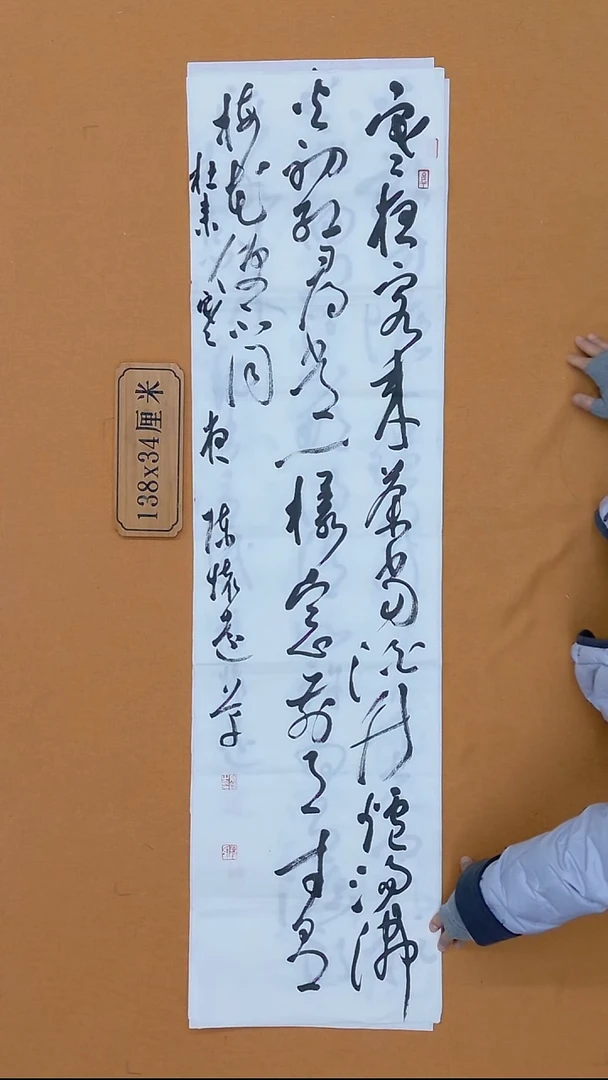 寒夜客来茶当酒竹炉汤沸
火初红寻常一样窗前月才有
梅花便不同
杜耒寒夜 陈怀远草
138x34厘米